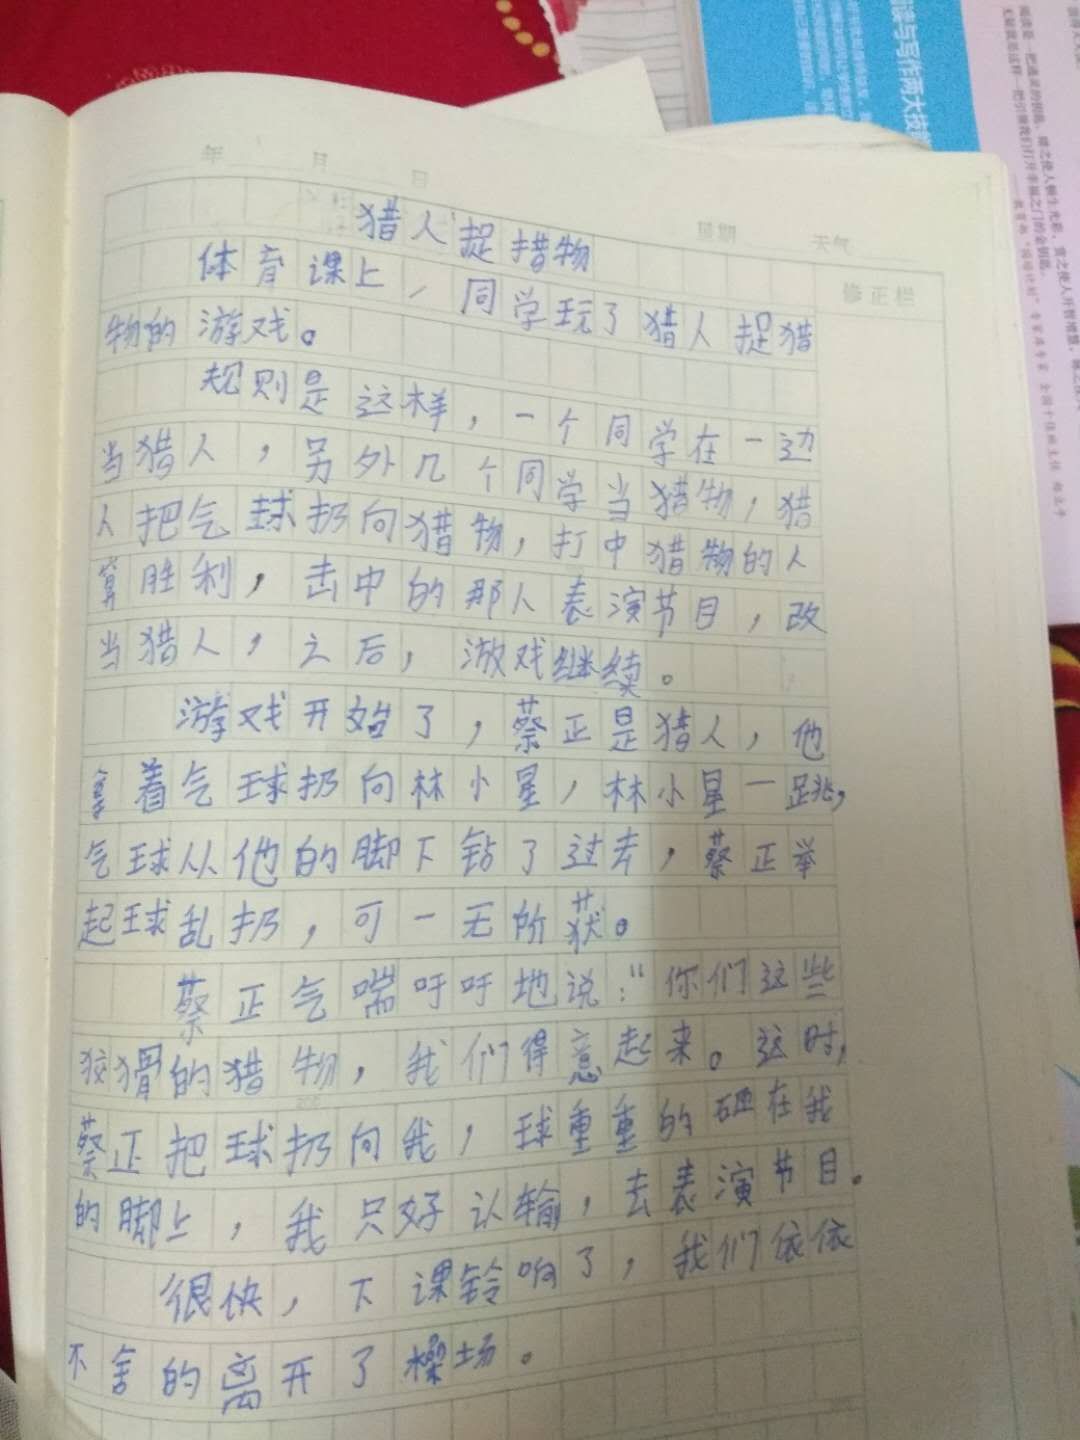 年 月 日 星期 天气
修正栏
猎人捉猎物
体育课上,同学玩了猎人捉猎
物的游戏。
规则是这样,一个同学在一边
当猎人,另外几个同学当猎物,猎
人把气球扔向猎物,打中猎物的人
算胜利,击中的那人表演节目,改
当猎人,之后,游戏继续。
游戏开始了,蔡正是猎人,他
拿着气球扔向林小星,林小星一跳,
气球从他的脚下钻了过去,蔡正举
起球乱扔,可一无所获。
蔡正气喘吁吁地说:“你们这些
狡猾的猎物,我们得意起来。这时,
蔡正把球扔向我,球重重的砸在我
的脚上,我只好认输,去表演节目。
很快,下课铃响了,我们依依
不舍的离开了操场。
阅读与写作两大技能